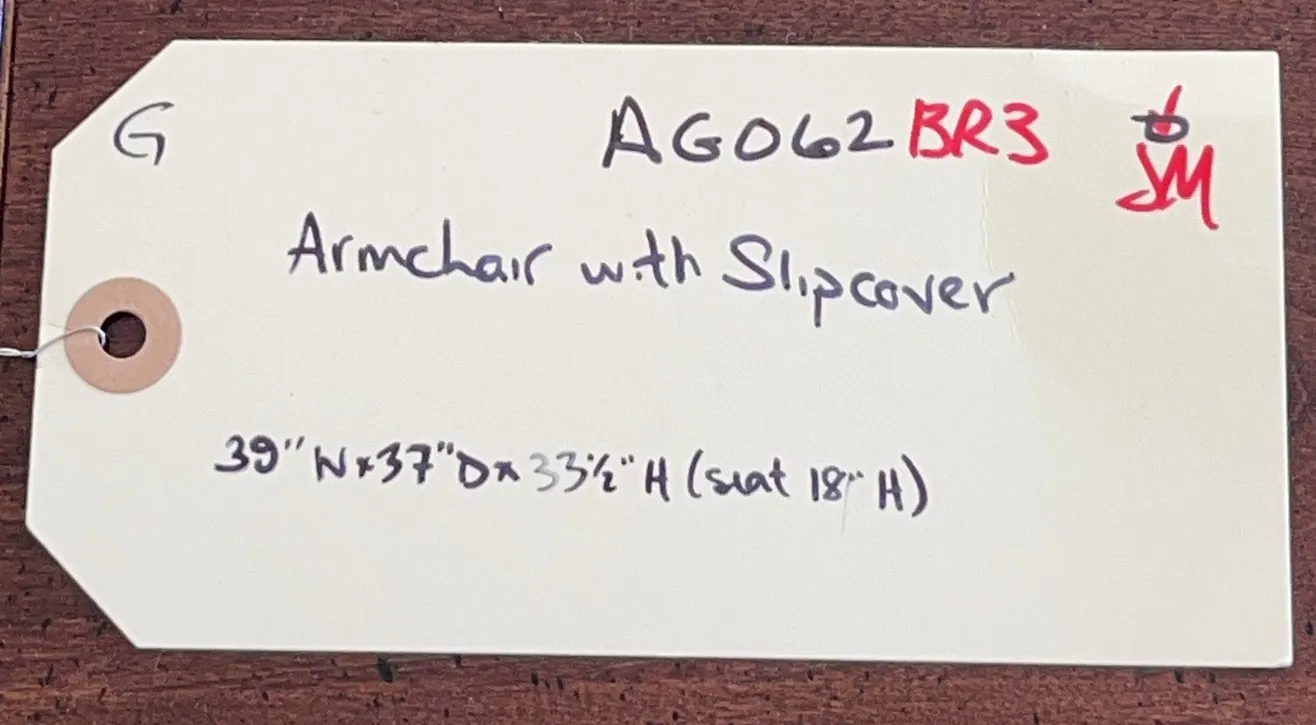 G AG062BR3
JM
Armchair with Slipcover
39"W x 37"D x 33½" H (seat 18" H)